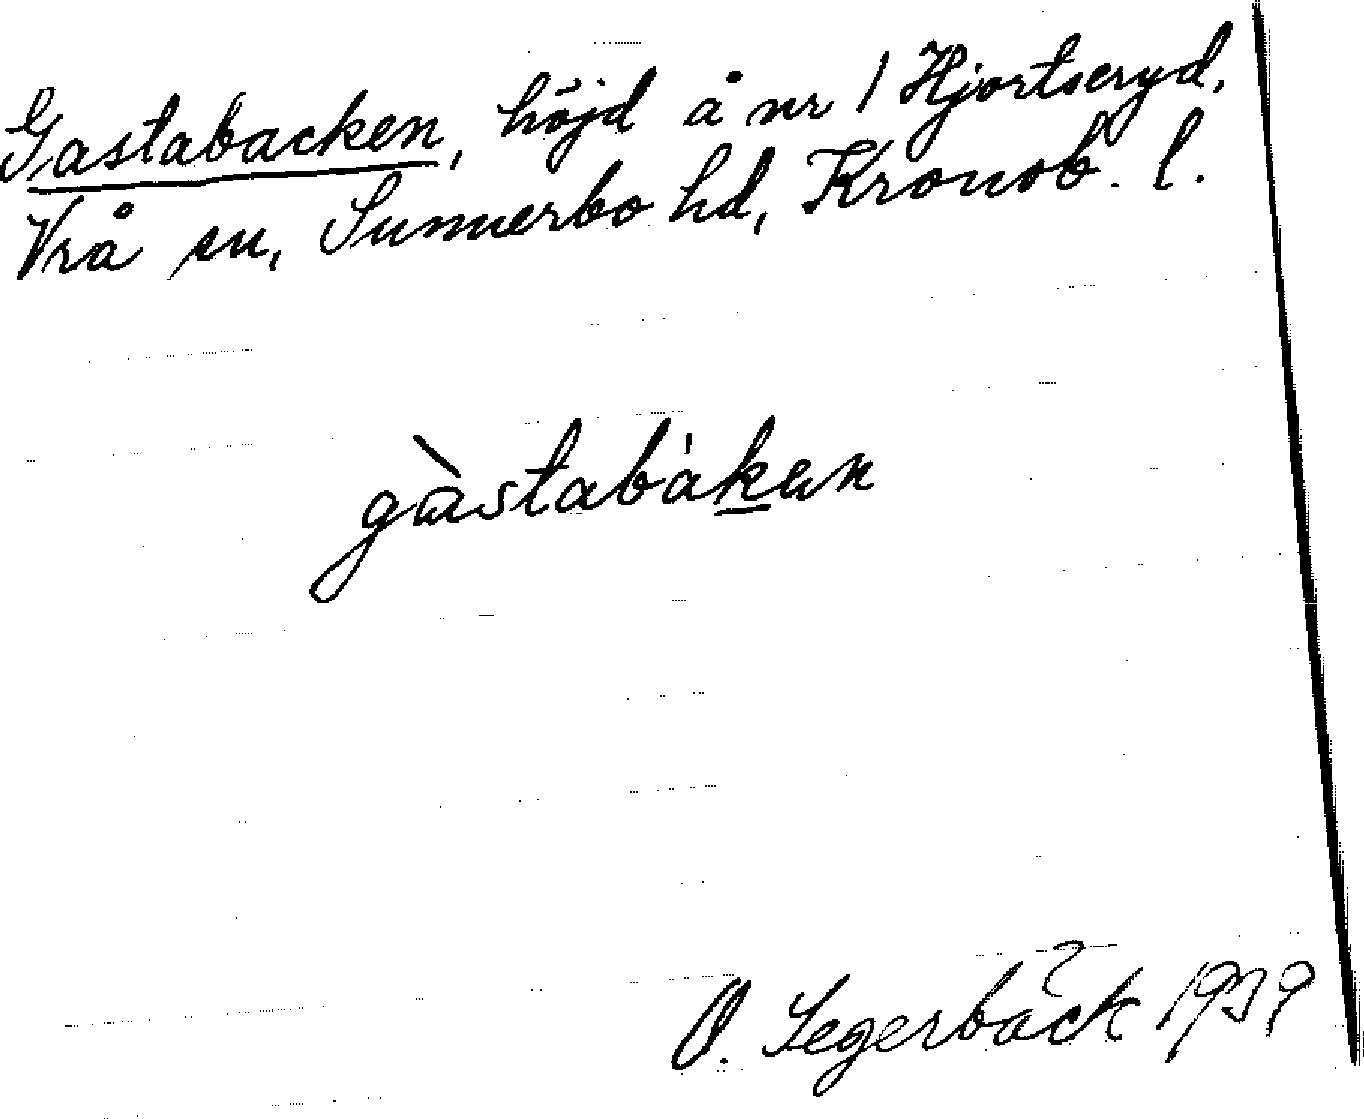 Gastabacken, höjd å nr 1 Hjortseryd,
Vrå sn, Sunnerbo hd, Kronob. l.
gàstabàkan
O. Segerbäck 1939